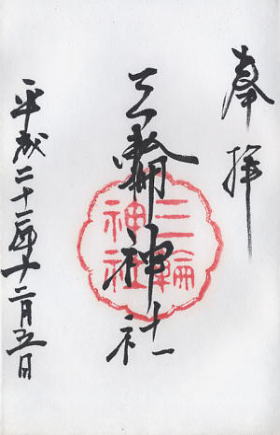 奉拝
三輪神社
三輪神社
平成二十二年十二月五日